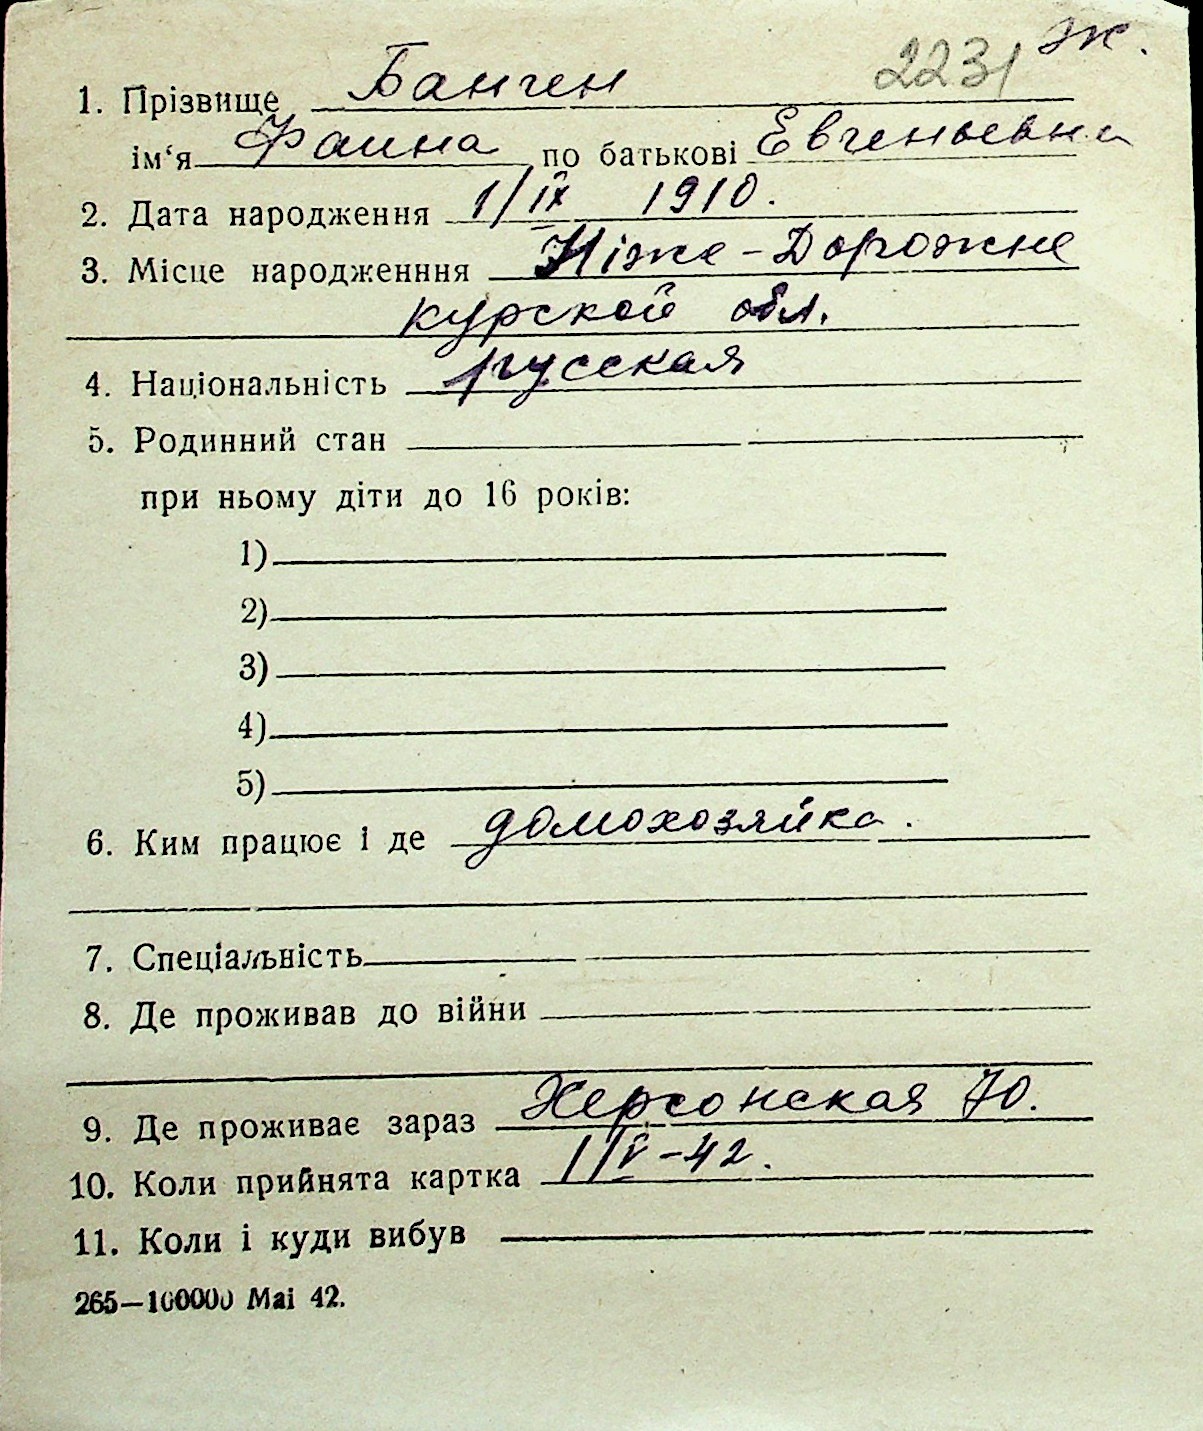 2231 ж.
1. Прізвище Банчен
ім‘я Фаина по батькові Евгеньевна
2. Дата народження 1/IX 1910.
3. Місце народженння Ніже-Дорожне
курской обл.
4. Національність русская
5. Родинний стан
при ньому діти до 16 років:
1)
2)
3)
4)
5)
6. Ким працює і де домохозяйка.
7. Спеціальність
8. Де проживав до війни
9. Де проживає зараз Херсонская 70.
10. Коли прийнята картка 1/V-42.
11. Коли і куди вибув
265—100000 Mai 42.